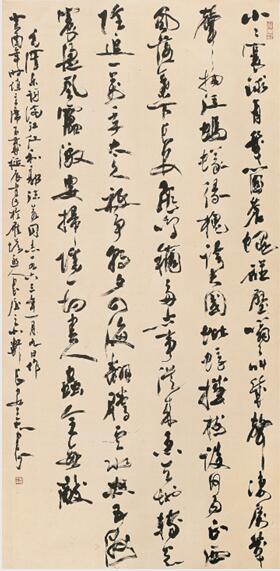 小小寰球有幾個蒼蠅碰壁嗡嗡叫幾聲凄厲幾
聲抽泣螞蟻緣槐誇大國蚍蜉撼樹談何易正西
風落葉下長安飛鳴鏑多少事從來急天地轉光
陰迫一萬年太久祇爭朝夕四海翻騰雲水怒五洲
震盪風雷激要掃除一切害人蟲全無敵
毛澤東詞滿江紅和郭沫若同志一九六三年一月九日作